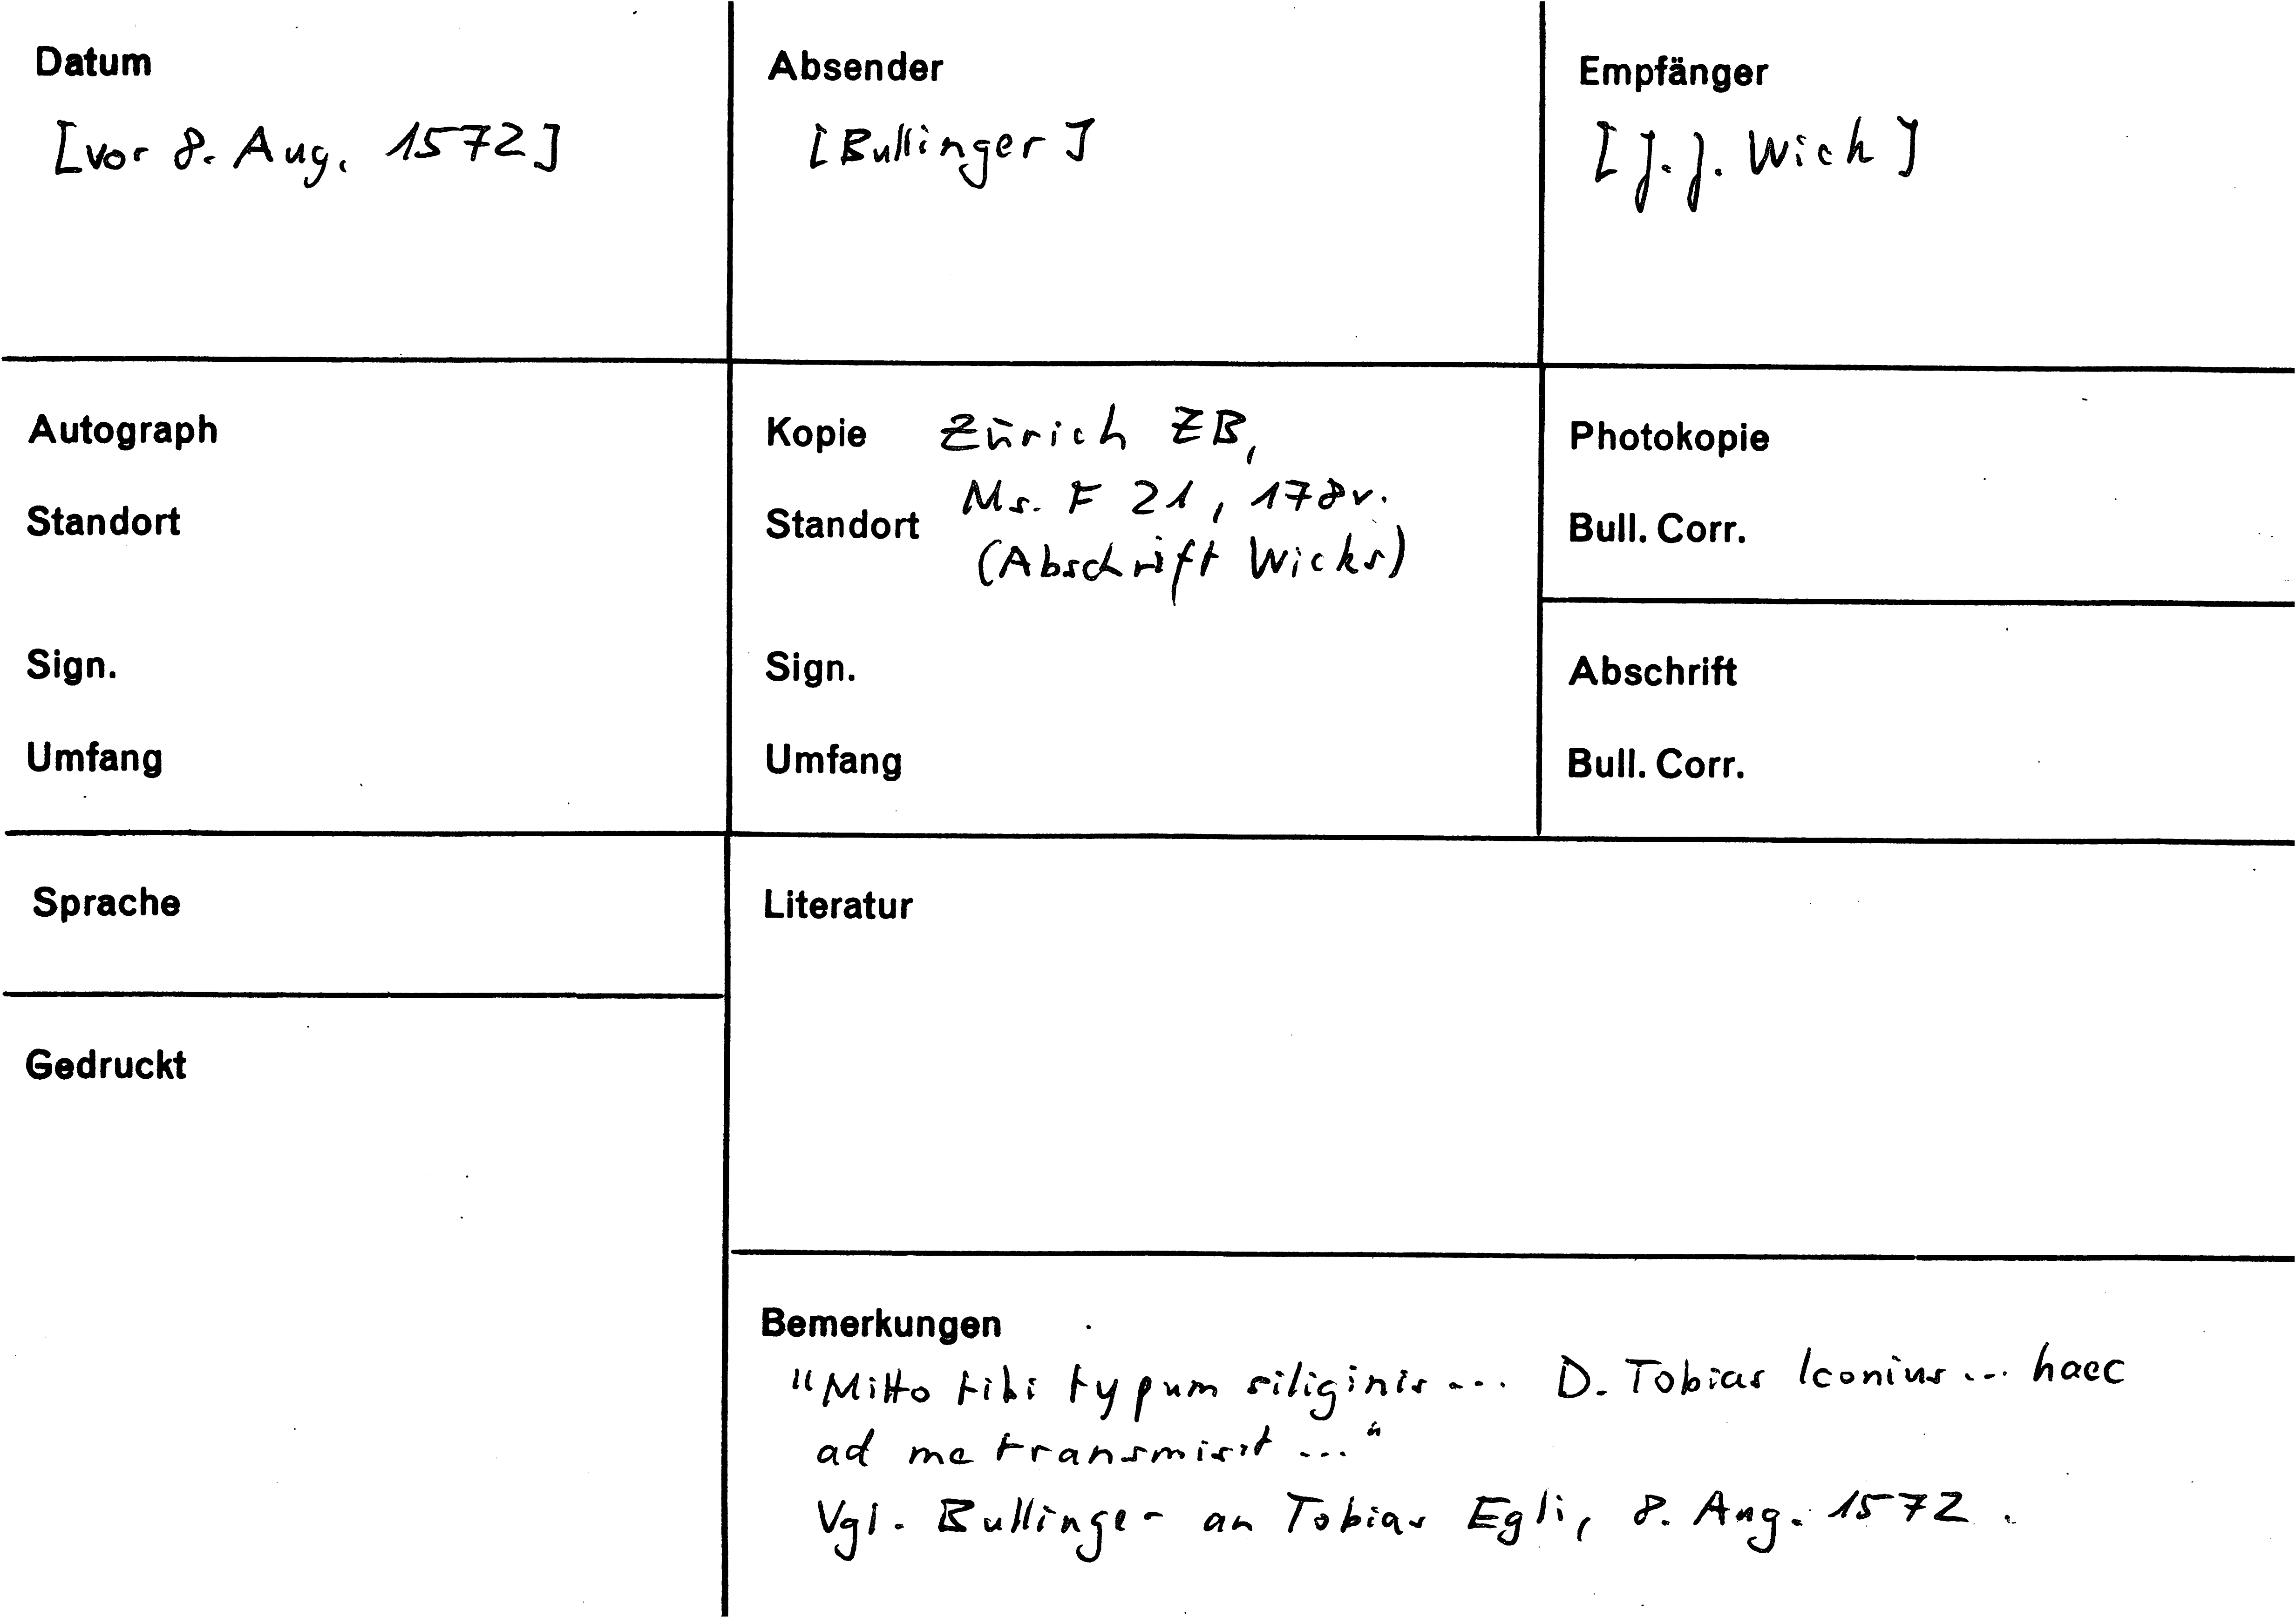 Datum
[vor 8. Aug. 1572]
Absender
[Bullinger]
Empfänger
[J. J. Wick]
Autograph
Standort
Sign.
Umfang
Kopie Zürich ZB,
Ms. F 21, 178v.
Standort
(Abschrift Wicks)
Sign.
Umfang
Photokopie
Bull. Corr.
Abschrift
Bull. Corr.
Sprache
Gedruckt
Literatur
Bemerkungen
"Mitto tibi typum siliginis ... D. Tobias Iconius ... haec
ad me transmisit ..."
Vgl. Bullinger an Tobias Egli, 8. Aug. 1572.